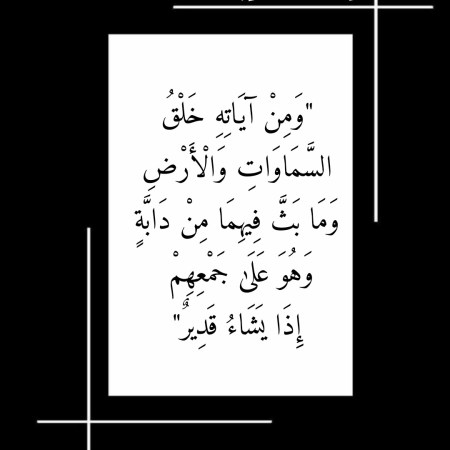 "وَمِنْ آيَاتِهِ خَلْقُ
السَّمَاوَاتِ وَالْأَرْضِ
وَمَا بَثَّ فِيهِمَا مِنْ دَابَّةٍ
وَهُوَ عَلَىٰ جَمْعِهِمْ
إِذَا يَشَاءُ قَدِيرٌ"